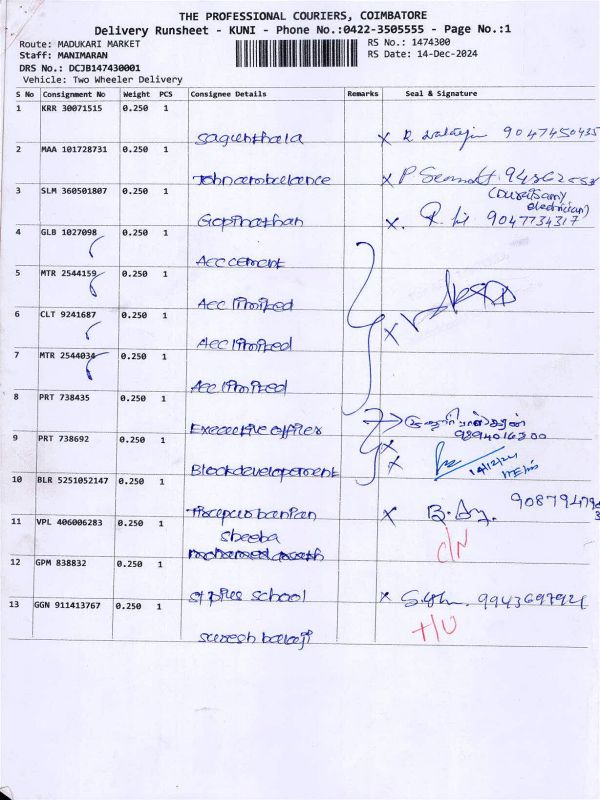 THE PROFESSIONAL COURIERS, COIMBATORE
Delivery Runsheet - KUNI - Phone No.:0422-3505555 - Page No.:1
Route: MADUKARI MARKET
RS No.: 1474300
Staff: MANIMARAN
RS Date: 14-Dec-2024
DRS No.: DCJB147430001
Vehicle: Two Wheeler Delivery
S No Consignment No Weight PCS Consignee Details Remarks Seal & Signature
1 KRR 30071515 0.250 1
sagunthala x 9047450435
2 MAA 101728731 0.250 1
John ambulance x
3 SLM 360501807 0.250 1
(Duraisamy
electrician)
Gopinathan x. 9047734317
4 GLB 1027098 0.250 1
Acc cement
5 MTR 2544159 0.250 1
Acc limited
6 CLT 9241687 0.250 1
Acc limited x
7 MTR 2544034 0.250 1
Acc limited
8 PRT 738435 0.250 1
Executive officer
9 PRT 738692 0.250 1
Block developement x 14/12/24
10 BLR 5251052147 0.250 1
x
11 VPL 406006283 0.250 1
sheeba C/N
12 GPM 838832 0.250 1
st pius school x 9943697921
13 GGN 911413767 0.250 1
suresh balaji